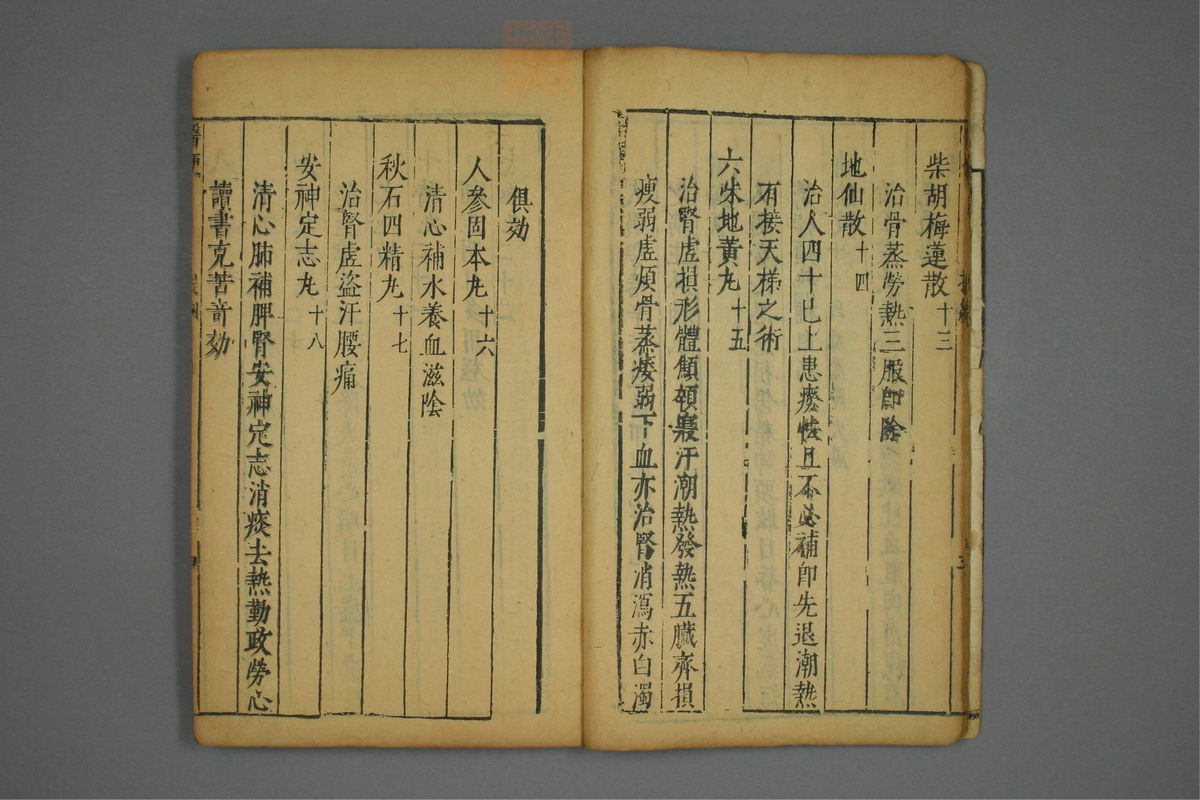 柴胡梅蓮散十三
治骨蒸勞熱三服卽除
地仙散十四
治人四十已上患癆怯且不必補卽先退潮熱
有接天梯之術
六味地黃丸十五
治腎虛損形體顦頓寢汗潮熱發熱五臟齊損
瘦弱虛煩骨蒸痿弱下血亦治腎消瀉赤白濁
俱効
人參固本丸十六
清心補水養血滋陰
秋石四精丸十七
治腎虛盜汗腰痛
安神定志丸十八
清心肺補脾腎安神定志消痰去熱勤政勞心
讀書克苦竒効